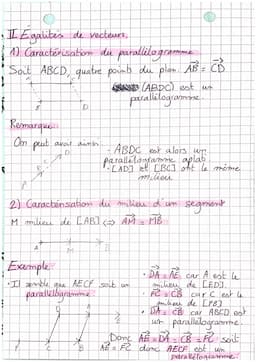 II Egalités de vecteurs.
1) Caractérisation du parallélogramme
Soit ABCD, quatre points du plan. AB = CD
(ABDC) est un
parallélogramme.
Remarque.
On peut avoir ainsi.
- ABDC est alors un
parallélogramme aplati
- [AD] et [BC] ont le même
milieu
2) Caractérisation du milieu d'un segment
M milieu de [AB] <=> AM = MB
A M B
Exemple.
• Il semble que AECF soit un
parallélogramme.
• DA = AE car A est le
milieu de [ED].
• FC = CB car C est le
milieu de [FB]
• DA = CB car ABCD est
un parallélogramme.
Donc AE = DA = CB = FC soit
AE = FC donc AECF est un
parallélogramme.